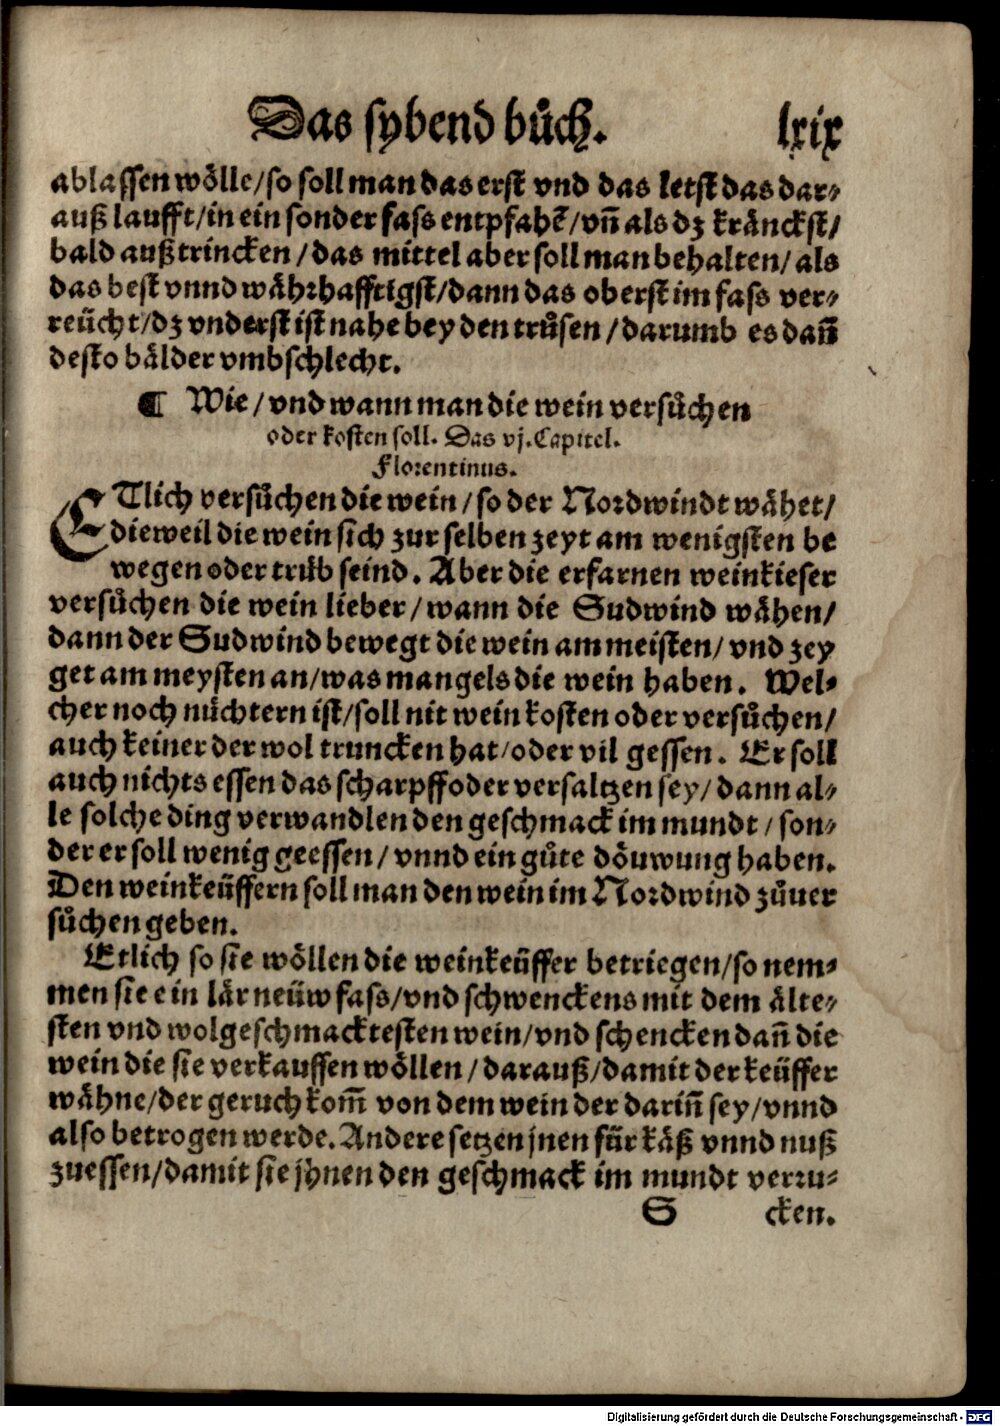 Das sybend bůch. lxix
ablassen wölle/so soll man das erst vnd das letst das dar-
auß laufft/in ein sonder fass entpfahẽ/vñ als dz kränckst/
bald außtrincken/das mittel aber soll man behalten/als
das best vnnd währhafftigst/dann das oberst im fass ver-
reücht/dz vnderst ist nahe bey den trůsen/darumb es dañ
desto bälder vmbschlecht.
¶ Wie/vnd wann man die wein versůchen
oder kosten soll. Das vj. Capitel.
Florentinus.
ETlich versůchen die wein/so der Nordwindt wähet/
dieweil die wein sich zur selben zeyt am wenigsten be
wegen oder trüb seind. Aber die erfarnen weinkieser
versůchen die wein lieber/wann die Sudwind wähen/
dann der Sudwind bewegt die wein am meisten/vnd zey
get am meysten an/was mangels die wein haben. Wel-
cher noch nüchtern ist/soll nit wein kosten oder versůchen/
auch keiner der wol truncken hat/oder vil gessen. Er soll
auch nichts essen das scharpff oder versaltzen sey/dann al-
le solche ding verwandlen den geschmack im mundt/son-
der er soll wenig geessen/vnnd ein gůte döuwung haben.
Den weinkeüffern soll man den wein im Nordwind zůuer
sůchen geben.
Etlich so sie wöllen die weinkeüffer betriegen/so nem-
men sie ein lär neüw fass/vnd schwenckens mit dem älte-
sten vnd wolgeschmacktesten wein/vnd schencken dañ die
wein die sie verkauffen wöllen/darauß/damit der keüffer
wähne/der geruch kom̃ von dem wein der dariñ sey/vnnd
also betrogen werde. Andere setzen jnen für käß vnnd nuß
zuessen/damit sie jhnen den geschmack im mundt verru-
S cken.
Digitalisierung gefördert durch die Deutsche Forschungsgemeinschaft - DFG